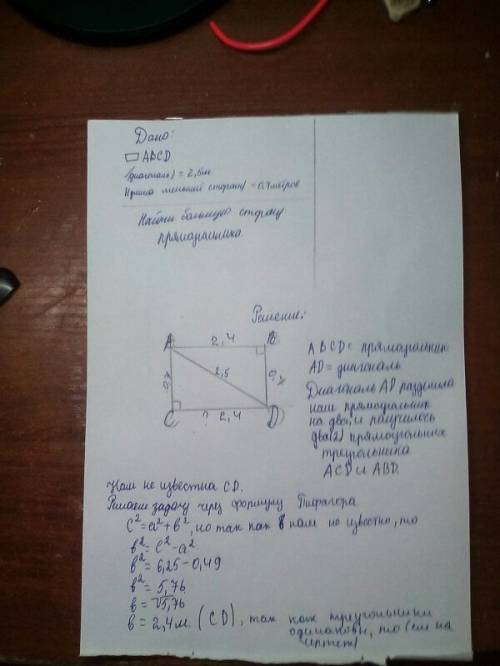 Дано:
▭ ABCD
(диагональ) = 2,5м
меньшей стороны = 0,7 метров
Найти большую сторону
прямоугольника
Решение:
A 2,4 B
0,7 2,5 0,7
C ? 2,4 D
ABCD = прямоугольник
AD = диагональ
Диагональ AD разделила
наш прямоугольник
на два, и получилось
два(2) прямоугольных
треугольника
ACD и ABD
Нам не известна CD.
Решаем задачу через формулу Пифагора
c²=a²+b², но так как b нам не известно, то
b²=c²-a²
b²=6,25-0,49
b²=5,76
b=√5,76
b=2,4м. (CD), так как треугольники
одинаковы, то (см на
чертеж)